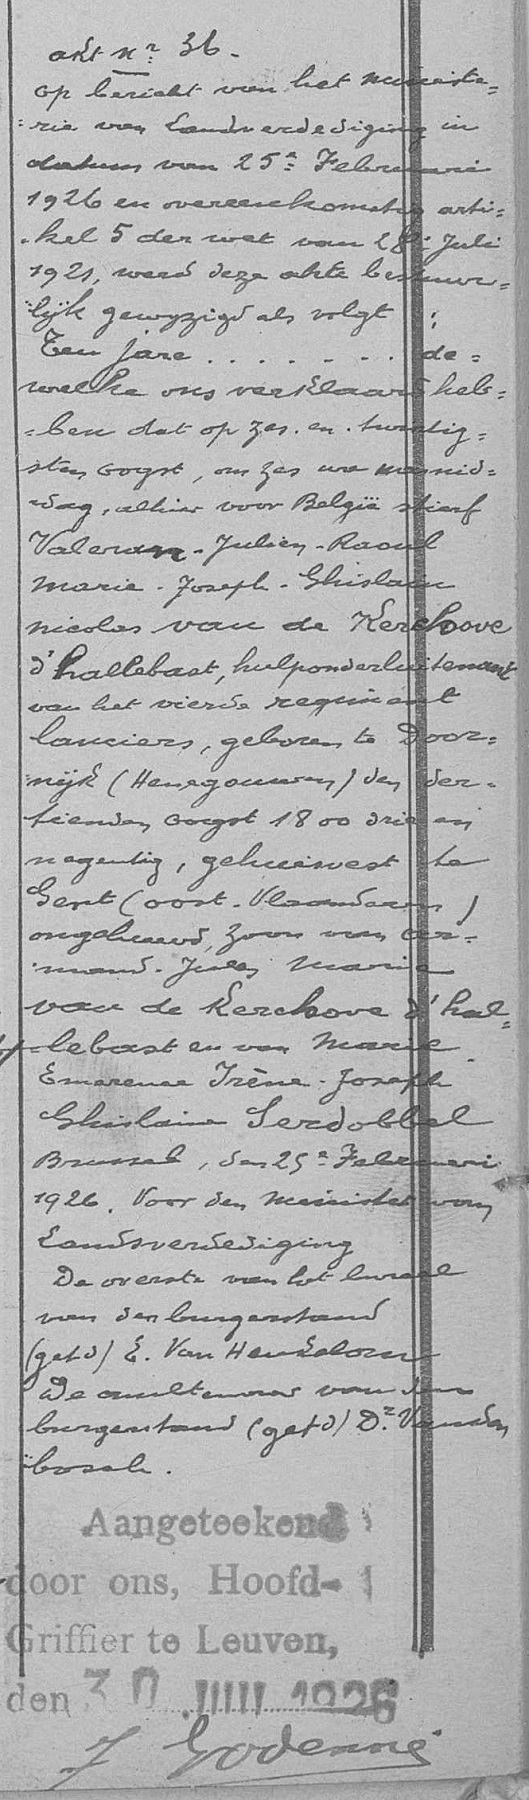 akt nr 36.
op bericht van het ministe=
=rie van Landverdediging in
datum van 25n Februari
1926 en overeenkomstig arti=
=kel 5 der wet van 28n Juli
1921, werd deze akte bestuur=
lijk gewyzigd als volgt :
Een jare . . . . . . . . de=
welke ons verklaard heb=
=ben dat op zes. en. twintig=
sten oogst, om zes ure
=dag, alhier voor België stierf
Valeran - Julien - Raoul
Marie - Joseph - Ghislain
nicolas van de Kerchove
d'hallebast, hulponderluitenant
van het vierde regiment
lanciers, geboren te Door=
nijk (Henegouwen) den der=
tienden oogst 1800 drie en
negentig, gehuisvest te
Gent (oost-Vlaanderen)
ongehuwd, zoon van Ar=
mand - Jules Marie
van de Kerchove d'hal=
lebast en van Marie
Emerence Irène - Joseph
Ghislaine Serdobbel
Brussel, den 25n Februari
1926. Voor den Minister van
Landsverdediging
De overste van het bureel
van den burgerstand
(getd) E. Van Heukelom
De amttenaar van den
burgerstand (getd) Dr. Vanden
bosch.
Aangeteekend
door ons, Hoofd-
Griffier te Leuven,
den 30 JUIN 1926
J Godenne